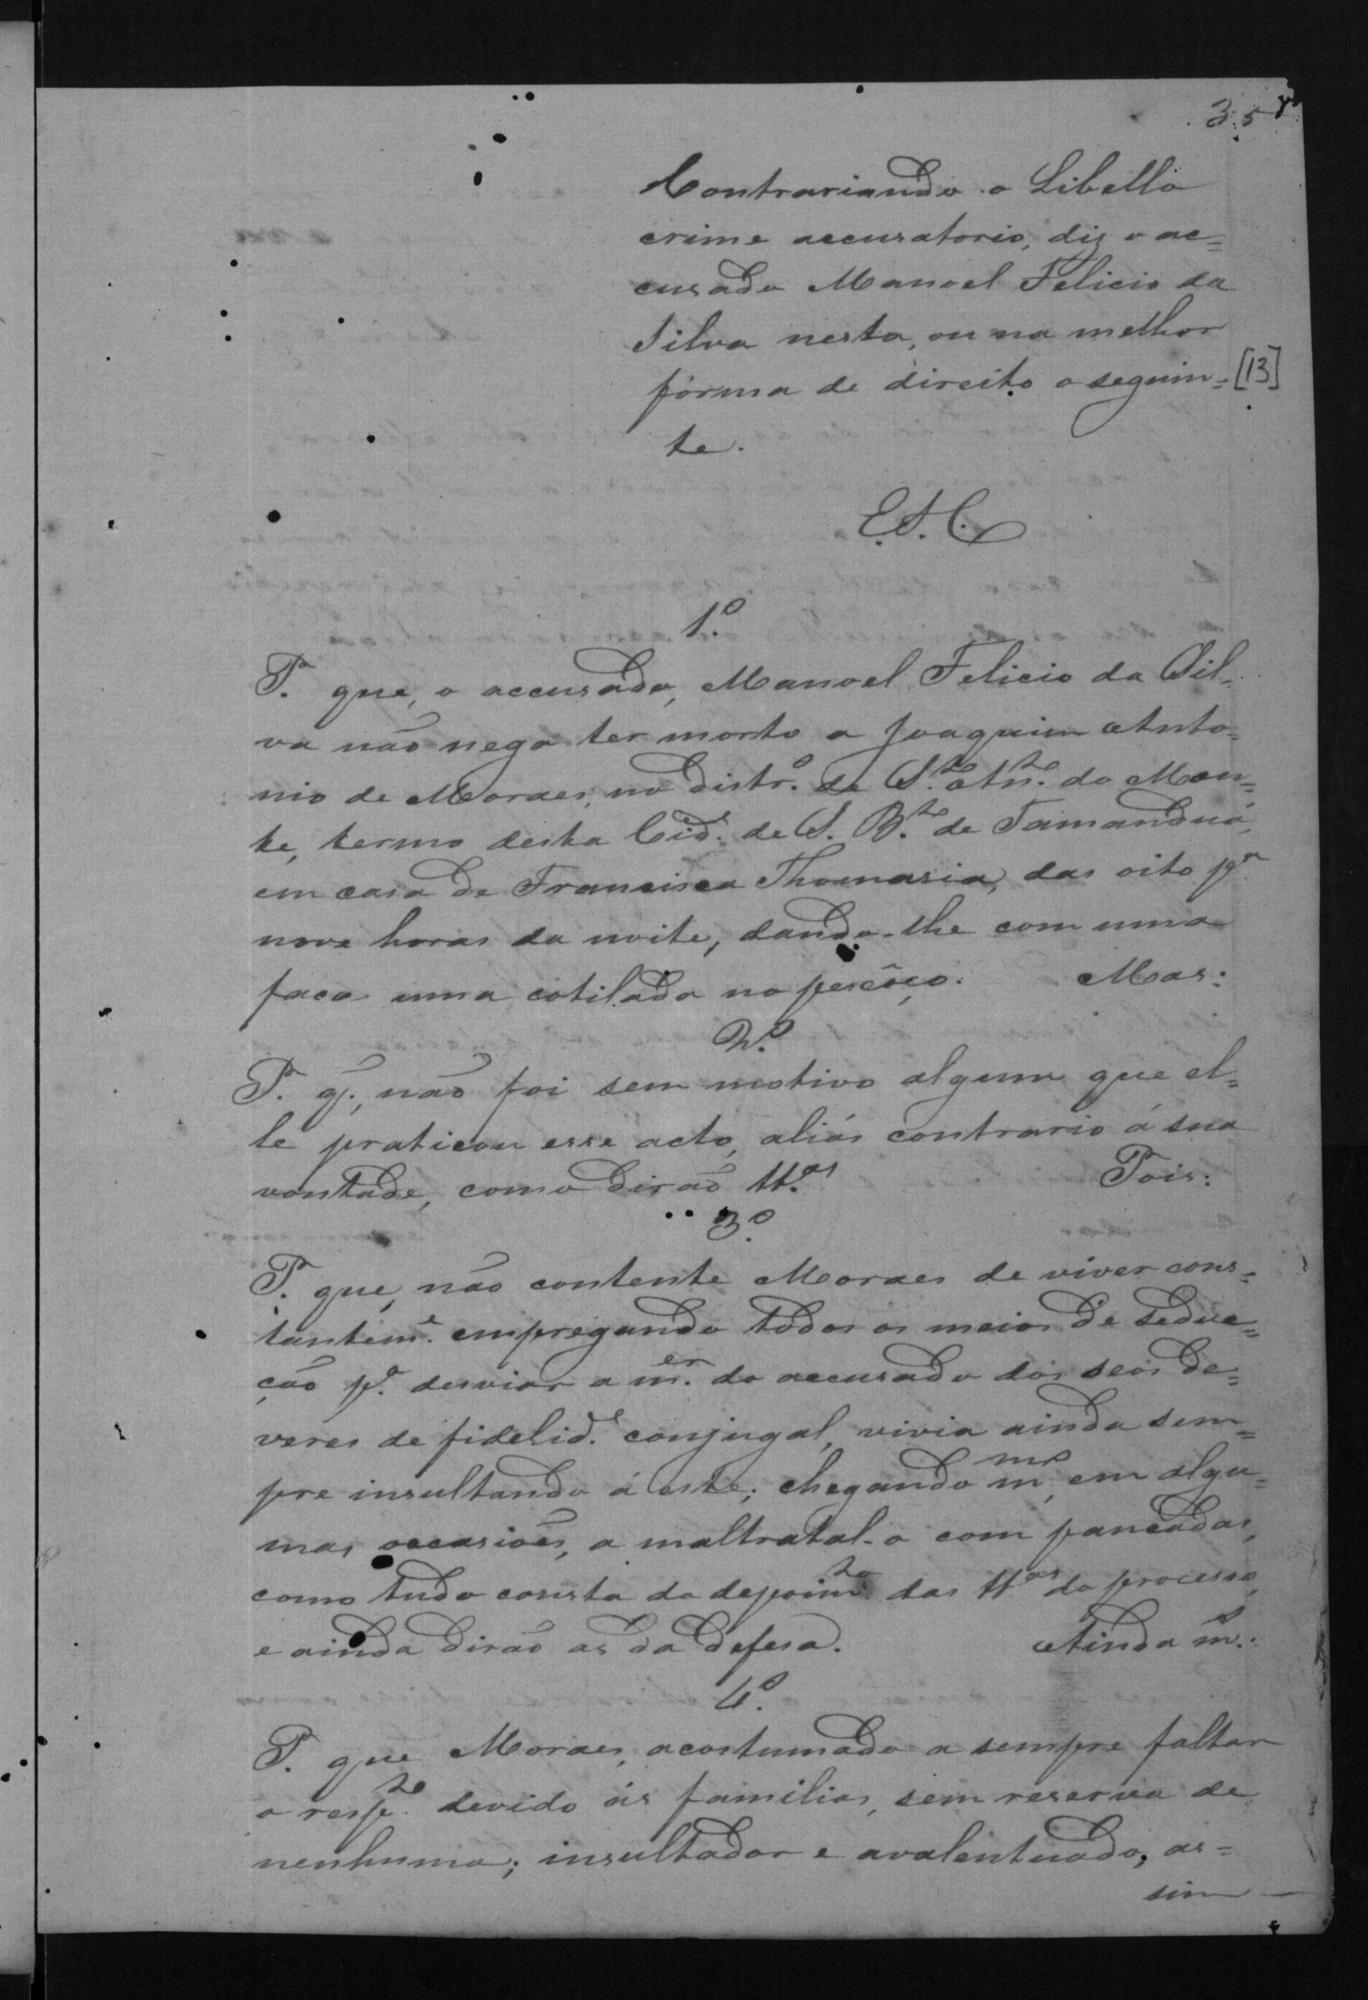 35
Contrariando o Libello
crime accusatorio, diz o ac=
cusado Manoel Felicio da
Silva nesta, ou na melhor
fórma de direito o seguin=
[13]
te.
E. S. C.
1.º
P. que, o accusado, Manoel Felicio da Sil=
va não nega ter morto a Joaquim Anto=
nio de Moraes, no distr.º de S.to Ant.º do Mon=
te, termo desta Cid.e de S. B.to de Tamanduá,
em casa de Francisca Thomasia, das oito p.a
nove horas da noite, dando-lhe com uma
faca uma cotilada no pescôço. Mas:
2.º
P. q̃., não foi sem motivo algum que el=
le praticou esse acto, aliás contrario á sua
vontade, como dirão tt.as Pois:
3.º
P. que, não contente Moraes de viver cons=
tantem.e empregando todos os meios de seduc=
ção p.a desviar a m.er do accusado dos seos de=
veres de fidelid.e conjugal, vivia ainda sem=
pre insultando á este; chegando m.mo em algu=
mas occasioẽs, a maltratal-o com pancadas,
como tudo consta do depoim.to das tt.as do processo,
e ainda dirão as da defesa. Ainda m.:
4.º
P. que Moraes, acostumado a sempre faltar
o resp.to devido ás familias, sem reserva de
nenhuma; insultador e avalentuado, as=
sim